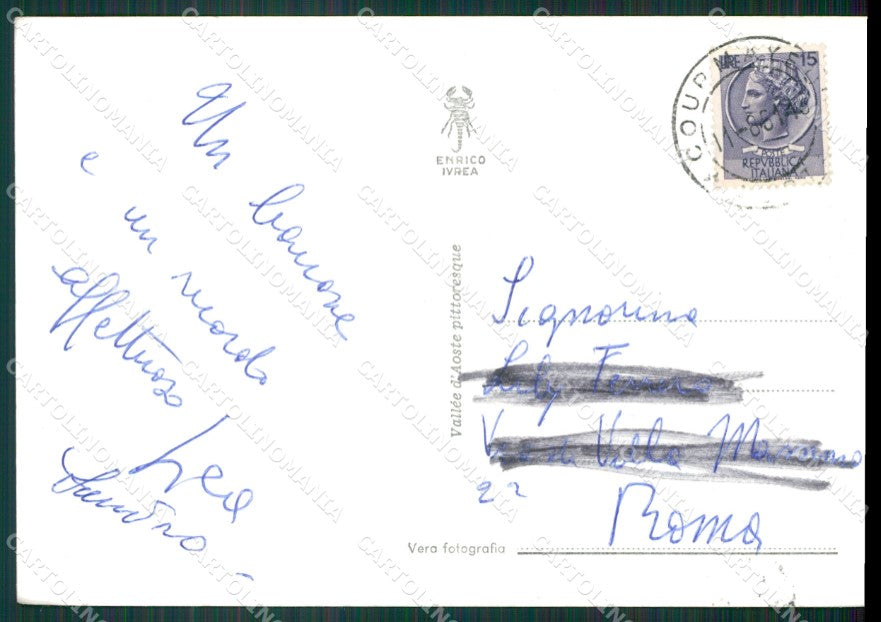 Un bacione
e
un ricordo
affettuoso
Lea
ENRICO
IVREA
Vallée d'Aoste pittoresque
COURMAYEUR
LIRE 15
POSTE
REPVBBLICA
ITALIANA
Signorina
Roma
Vera fotografia
CARTOLINOMANIA